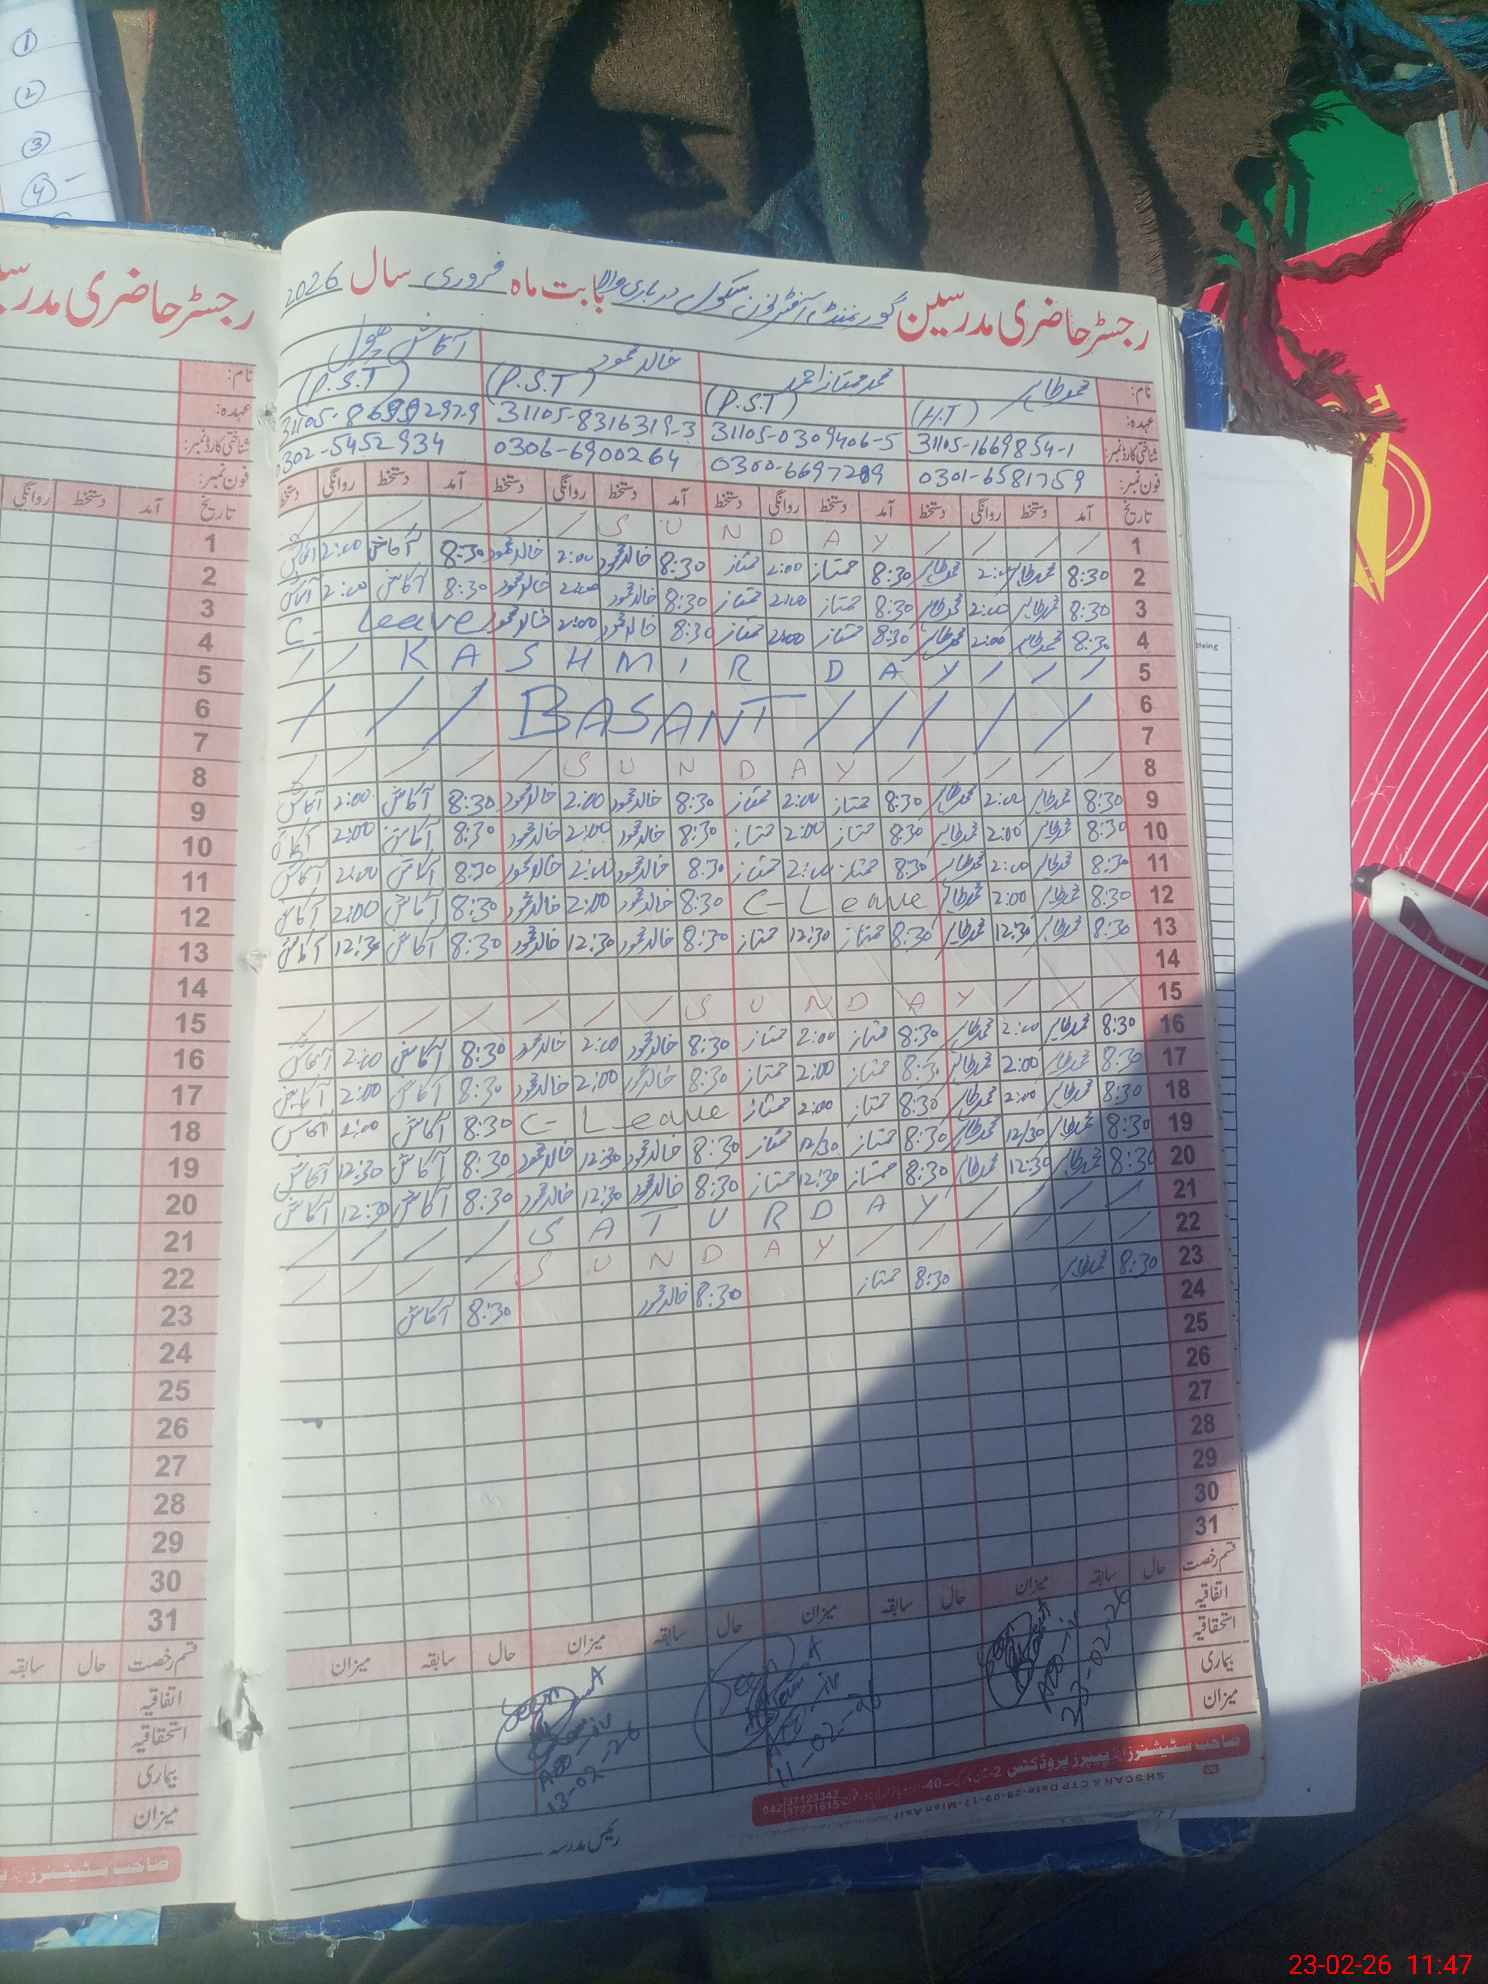 رجسٹر حاضری مدرسین گورنمنٹ آفٹرنون سکول درباری والا بابت ماہ فروری سال 2026
نام: محمد طاہر محمد ممتاز احمد خالد محمود آکاش
عہدہ: (H.T) (P.S.T) (P.S.T) (P.S.T)
شناختی کارڈ نمبر: 31105-1669854-1 31105-0309406-5 31105-8316319-3 31105-8699297-9
فون نمبر: 0301-6581759 0300-6697289 0306-6900264 0302-5452934
تاریخ آمد دستخط روانگی دستخط آمد دستخط روانگی دستخط آمد دستخط روانگی دستخط آمد دستخط روانگی دستخط
1 SUNDAY
2 8:30 محمد طاہر 2:00 محمد طاہر 8:30 ممتاز 2:00 ممتاز 8:30 خالد محمود 2:00 خالد محمود 8:30 آکاش 2:00 آکاش
3 8:30 محمد طاہر 2:00 محمد طاہر 8:30 ممتاز 2:00 ممتاز 8:30 خالد محمود 2:00 خالد محمود 8:30 آکاش 2:00 آکاش
4 8:30 محمد طاہر 2:00 محمد طاہر 8:30 ممتاز 2:00 ممتاز 8:30 خالد محمود 2:00 خالد محمود C- Leave
5 KASHMIR DAY
6
7 BASANT
8 SUNDAY
9 8:30 محمد طاہر 2:00 محمد طاہر 8:30 ممتاز 2:00 ممتاز 8:30 خالد محمود 2:00 خالد محمود 8:30 آکاش 2:00 آکاش
10 8:30 محمد طاہر 2:00 محمد طاہر 8:30 ممتاز 2:00 ممتاز 8:30 خالد محمود 2:00 خالد محمود 8:30 آکاش 2:00 آکاش
11 8:30 محمد طاہر 2:00 محمد طاہر 8:30 ممتاز 2:00 ممتاز 8:30 خالد محمود 2:00 خالد محمود 8:30 آکاش 2:00 آکاش
12 8:30 محمد طاہر 2:00 محمد طاہر C- Leave 8:30 خالد محمود 2:00 خالد محمود 8:30 آکاش 2:00 آکاش
13 8:30 محمد طاہر 12:30 محمد طاہر 8:30 ممتاز 12:30 ممتاز 8:30 خالد محمود 12:30 خالد محمود 8:30 آکاش 12:30 آکاش
14
15 SUNDAY
16 8:30 محمد طاہر 2:00 محمد طاہر 8:30 ممتاز 2:00 ممتاز 8:30 خالد محمود 2:00 خالد محمود 8:30 آکاش 2:00 آکاش
17 8:30 محمد طاہر 2:00 محمد طاہر 8:30 ممتاز 2:00 ممتاز 8:30 خالد محمود 2:00 خالد محمود 8:30 آکاش 2:00 آکاش
18 8:30 محمد طاہر 2:00 محمد طاہر 8:30 ممتاز 2:00 ممتاز C- Leave 8:30 آکاش 2:00 آکاش
19 8:30 محمد طاہر 12/30 محمد طاہر 8:30 ممتاز 12/30 ممتاز 8:30 خالد محمود 12:30 خالد محمود 8:30 آکاش 12:30 آکاش
20 8:30 محمد طاہر 12:30 محمد طاہر 8:30 ممتاز 12:30 ممتاز 8:30 خالد محمود 12:30 خالد محمود 8:30 آکاش 12:30 آکاش
21 SATURDAY
22 SUNDAY
23 8:30 محمد طاہر 8:30 ممتاز 8:30 خالد محمود 8:30 آکاش
24
25
26
27
28
29
30
31
قسم رخصت حال سابقہ میزان حال سابقہ میزان حال سابقہ میزان حال سابقہ میزان
اتفاقیہ
استحقاقیہ
بیماری
میزان
Seen
23-02-26
Seen
11-02-26
Seen
13-02-26
صاحب سٹیشنرز اینڈ پیپرز پروڈکٹس
رئیس مدرسہ
رجسٹر حاضری مدرسین
نام:
عہدہ:
شناختی کارڈ نمبر:
فون نمبر:
تاریخ آمد دستخط روانگی
1
2
3
4
5
6
7
8
9
10
11
12
13
14
15
16
17
18
19
20
21
22
23
24
25
26
27
28
29
30
31
قسم رخصت حال سابقہ
اتفاقیہ
استحقاقیہ
بیماری
میزان
صاحب سٹیشنرز
1
2
3
4
23-02-26 11:47